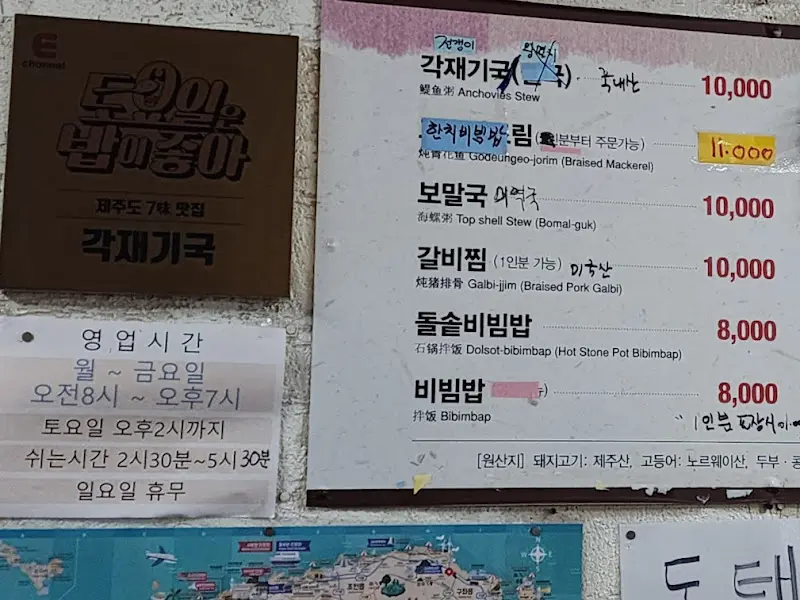 E
channel
토요일은
밥이 좋아
제주도 7味 맛집
각재기국
영업시간
월 ~ 금요일
오전8시 ~ 오후7시
토요일 오후2시까지
쉬는시간 2시30분~5시30분
일요일 휴무
전갱이
각재기국( 국). 국내산 10,000
鳀鱼粥 Anchovies Stew
한치비빔밥 림( 인분부터 주문가능) 11.000
炖青花鱼 Godeungeo-jorim (Braised Mackerel)
보말국 미역국 10,000
海螺粥 Top shell Stew (Bomal-guk)
갈비찜 (1인분 가능) 미국산 10,000
炖猪排骨 Galbi-jjim (Braised Pork Galbi)
돌솥비빔밥 8,000
石锅拌饭 Dolsot-bibimbap (Hot Stone Pot Bibimbap)
비빔밥 8,000
拌饭 Bibimbap
1인분 포장시
[원산지] 돼지고기: 제주산, 고등어: 노르웨이산, 두부 · 콩
도